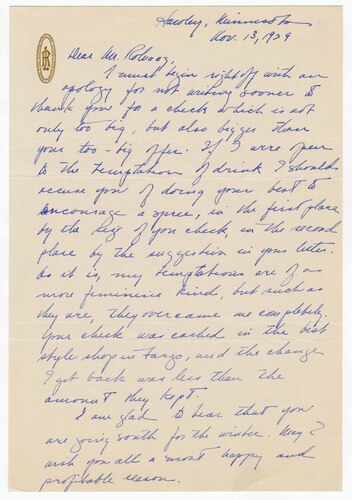 Hawley, Minnesota
Nov. 13, 1929
Dear Mr. Rolvaag,
I must begin right off with an
apology for not writing sooner to
thank you for a check which is not
only too big, but also bigger than
your too-big offer. If I were open
to the temptations of drink I should
accuse you of doing your best to
encourage a spree, in the first place
by the size of you check, in the second
place by the suggestion in your letter.
As it is, my temptations are of a
more feminine kind, but such as
they are, they overcame me completely.
Your check was cashed in the best
style shop in Fargo, and the change
I got back was less than the
amount they kept.
I am glad to hear that you
are going south for the winter. May I
wish you all a most happy and
profitable season.